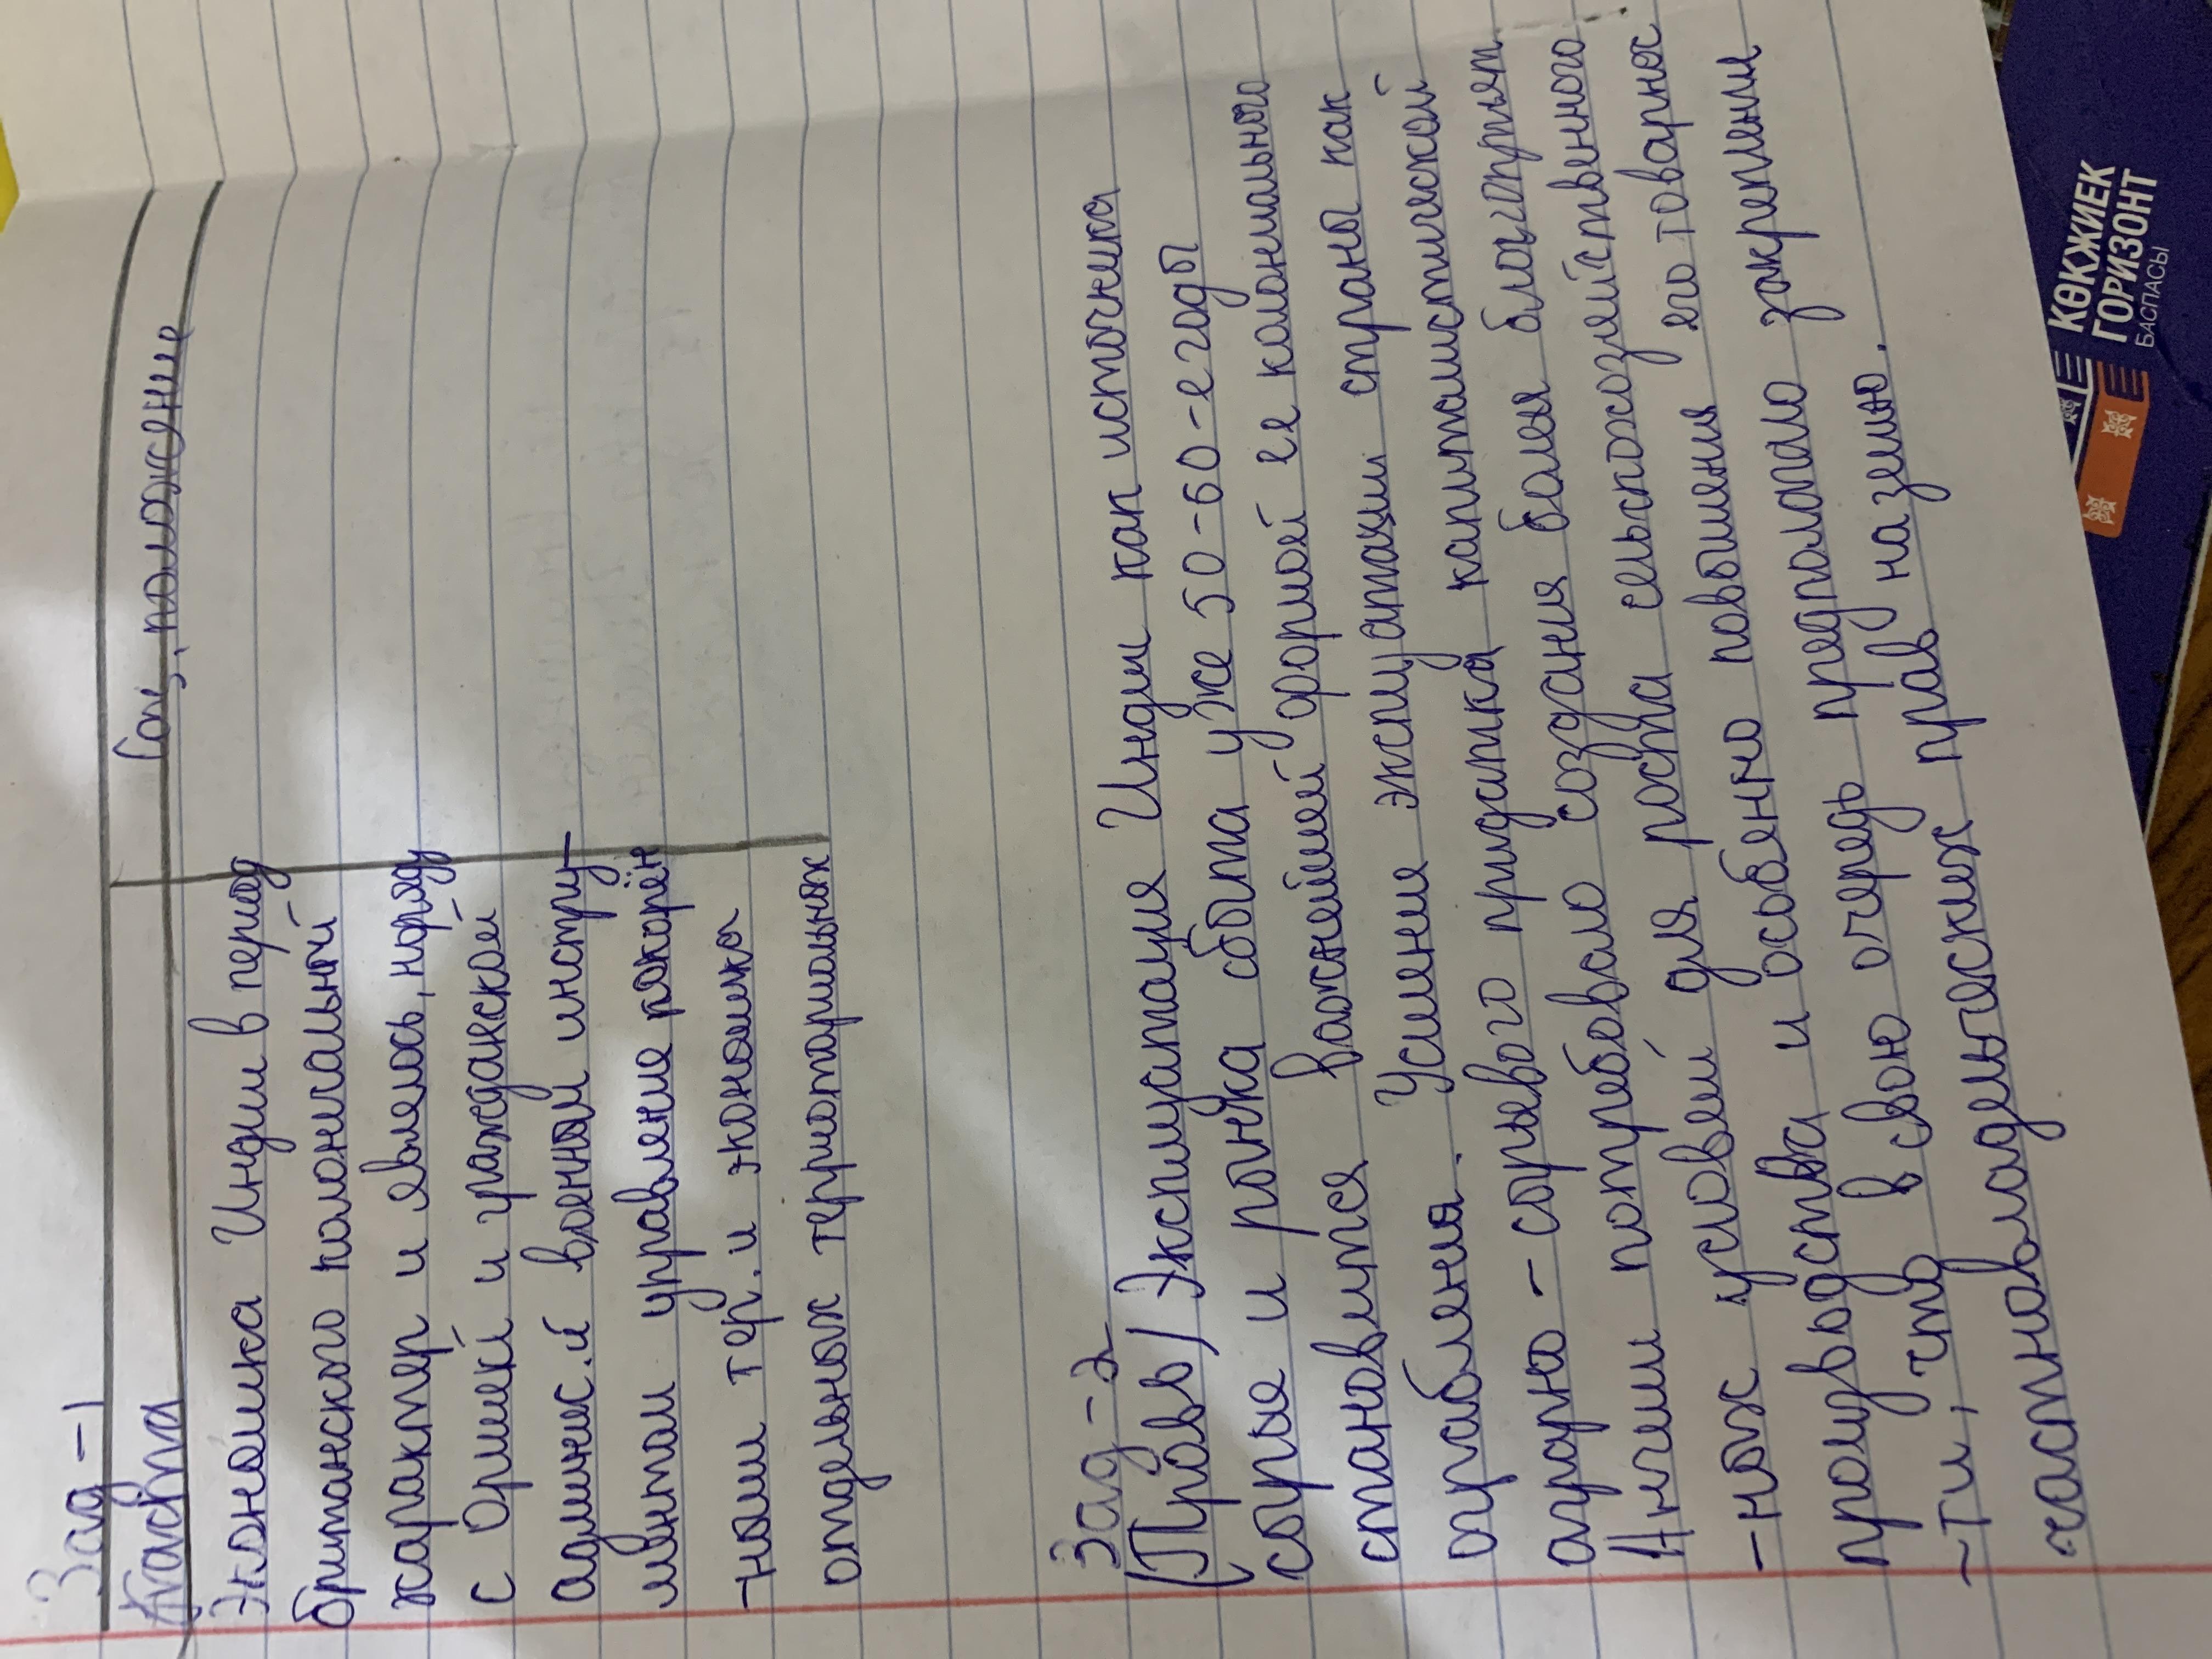 Зад-1
Соц, положение
Экономика Индии в период
британского колониальный
характер и явлось, наряду
с Армией и гражданской
админис.й военным инстру-
ментом управление покорён
-ным тер. и экономика
отдельных территориальных
Зад-2
(Право) Эксплуатация Индии как источника
сырья и рынка сбыта уже 50-60-е годы
становится важнейшей формой ее колониального
ограбления. Усиление эксплуатации страны как
аграрно-сырьевого придатка капиталистической
Англии потребовало создания более благоприят
-ных условий для роста сельскохозяйственного
производства и особенно повышения его товарнос
-ти, что в свою очередь предполагало закреплении
частновладельческих прав на землю.
КӨКЖИЕК
ГОРИЗОНТ
БАСПАСЫ